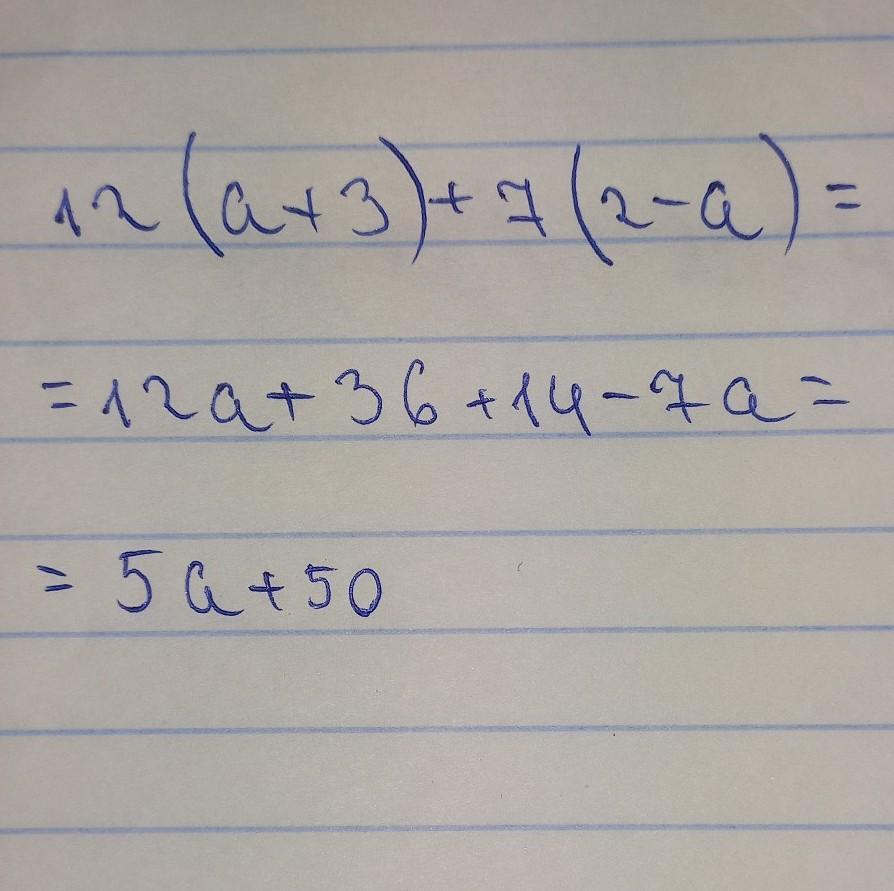 12(a+3)+7(2-a)=
=12a+36+14-7a=
=5a+50